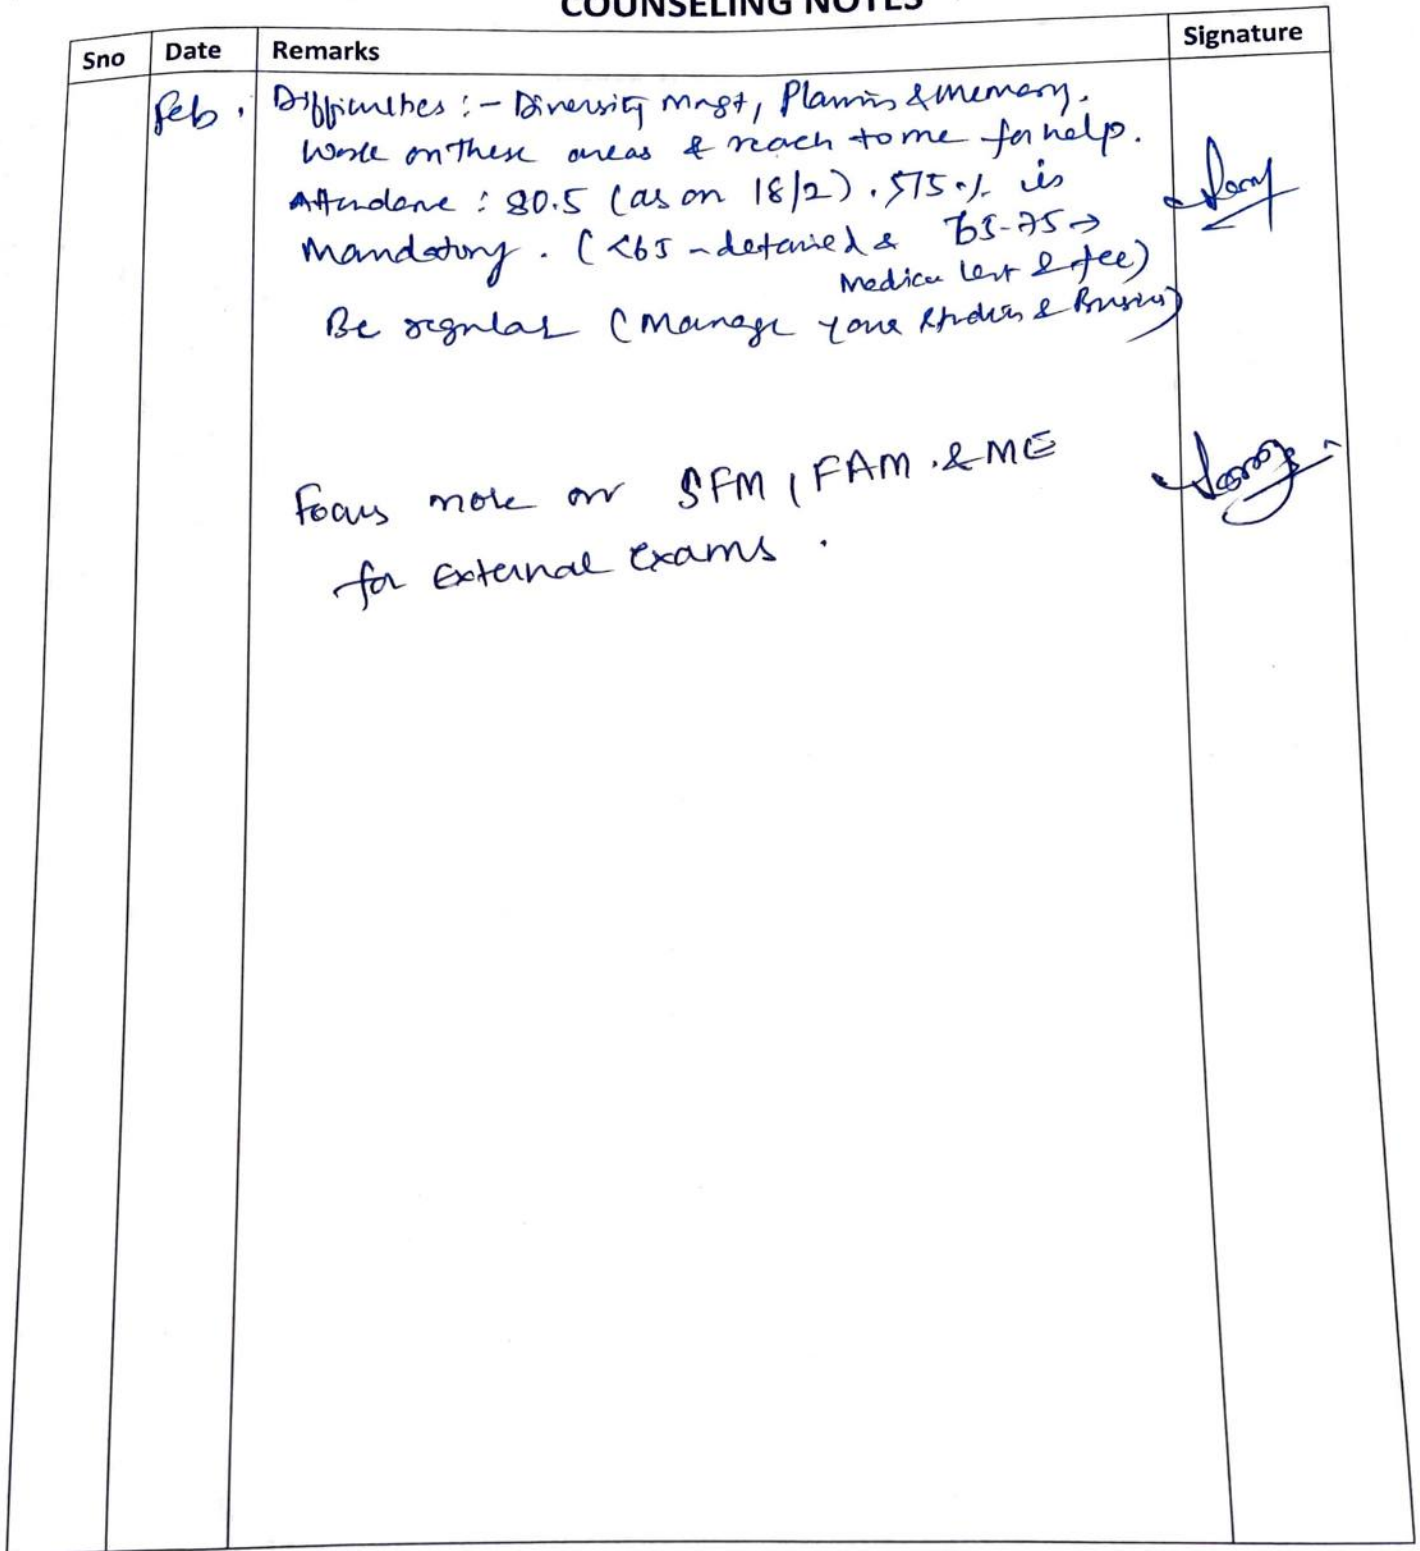 COUNSELING NOTES
Sno Date Remarks Signature
Feb. Difficulties :- Diversity Mngt, Planning & memory.
Work on these areas & reach to me for help.
Attendance : 80.5 (as on 18/2). 75% is
Mandatory. (<65 - detained & 65-75 →
Medical & fee)
Be regular (Manage your studies & Business)
Focus more on SFM, FAM & ME
for External Exams.